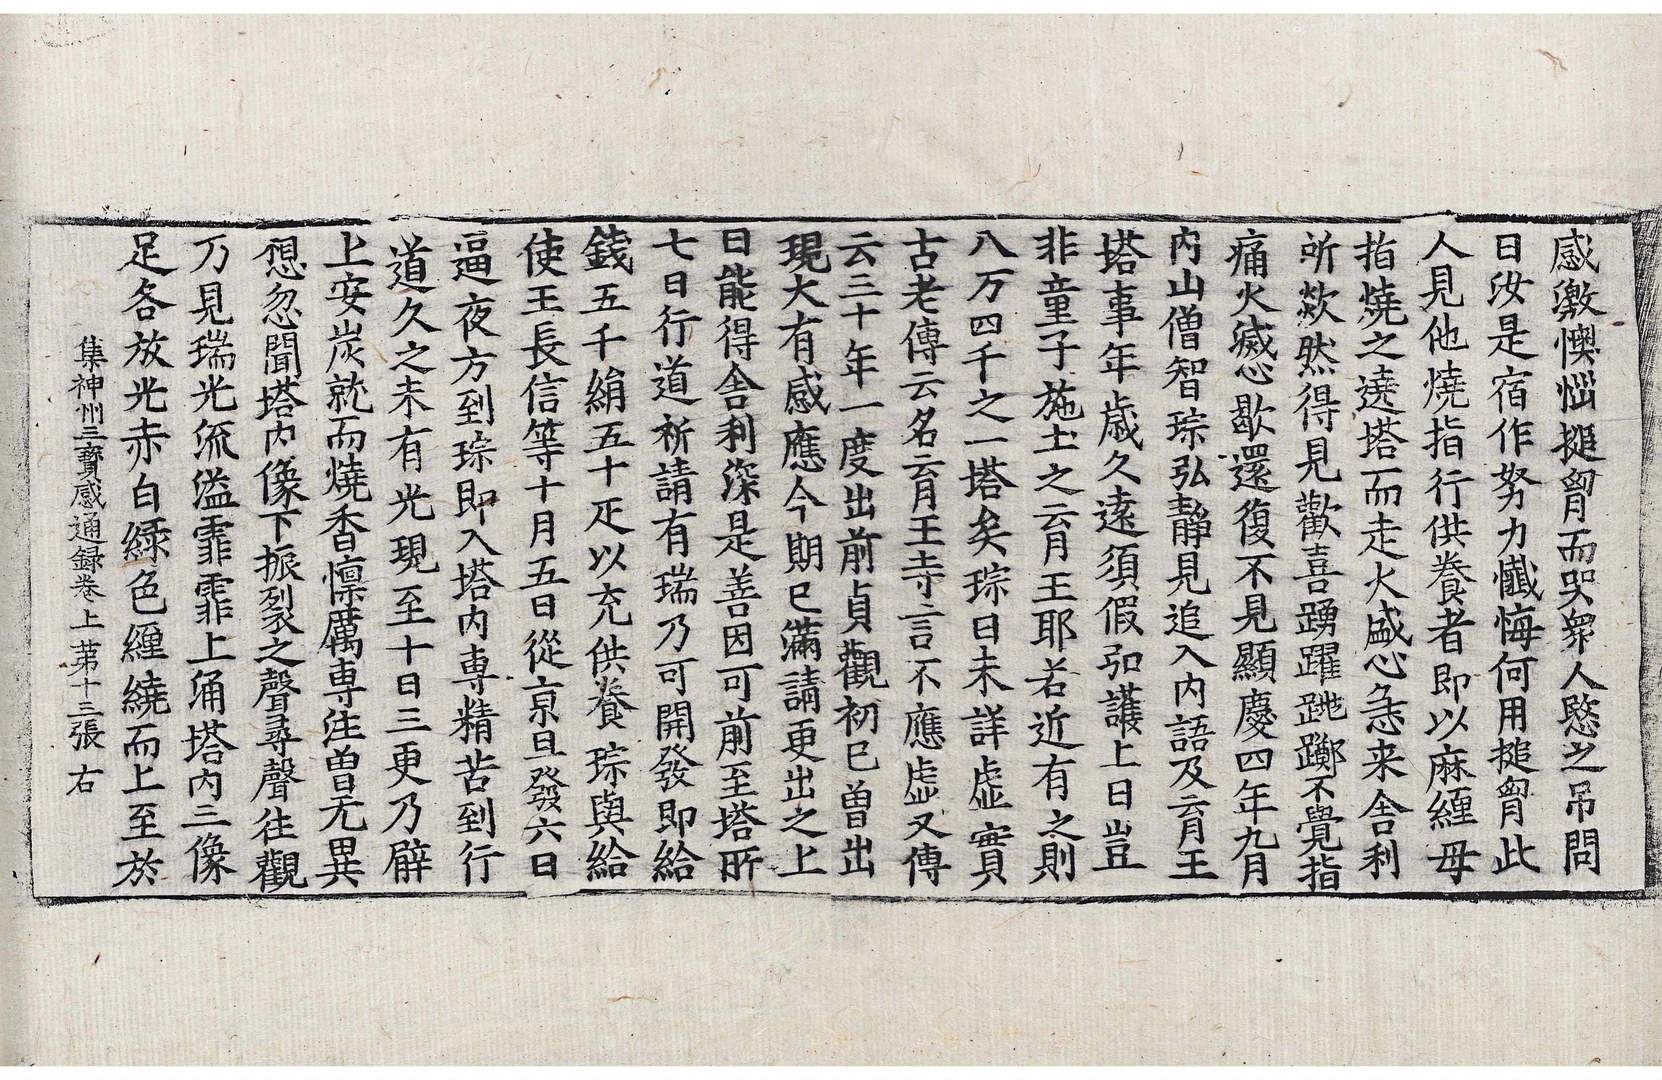 感激懊惱搥胷而哭衆人愍之吊問
曰汝是宿作努力懺悔何用搥胷此
人見他燒指行供養者即以麻纏母
指燒之遶塔而走火盛心急来舍利
所欻然得見歡喜踴躍跳躑不覺指
痛火滅心歇還復不見顯慶四年九月
内山僧智琮弘静見追入内語及育王
塔事年歲久遠須假弘護上曰豈
非童子施土之育王耶若近有之則
八万四千之一塔矣琮曰未詳虛實
古老傳云名育王寺言不應虛又傳
云三十年一度出前貞觀初已曾出
現大有感應今期已滿請更出之上
曰能得舍利深是善因可前至塔所
七日行道祈請有瑞乃可開發即給
錢五千絹五十疋以充供養琮與給
使王長信等十月五日從京旦發六日
逼夜方到琮即入塔内專精苦到行
道久之未有光現至十日三更乃臂
上安炭就而燒香懍厲專注曾无異
想忽聞塔内像下振裂之聲尋聲往觀
乃見瑞光流溢霏霏上涌塔内三像
足各放光赤白綠色纏繞而上至於
集神州三寶感通録卷上 苐十三張 右